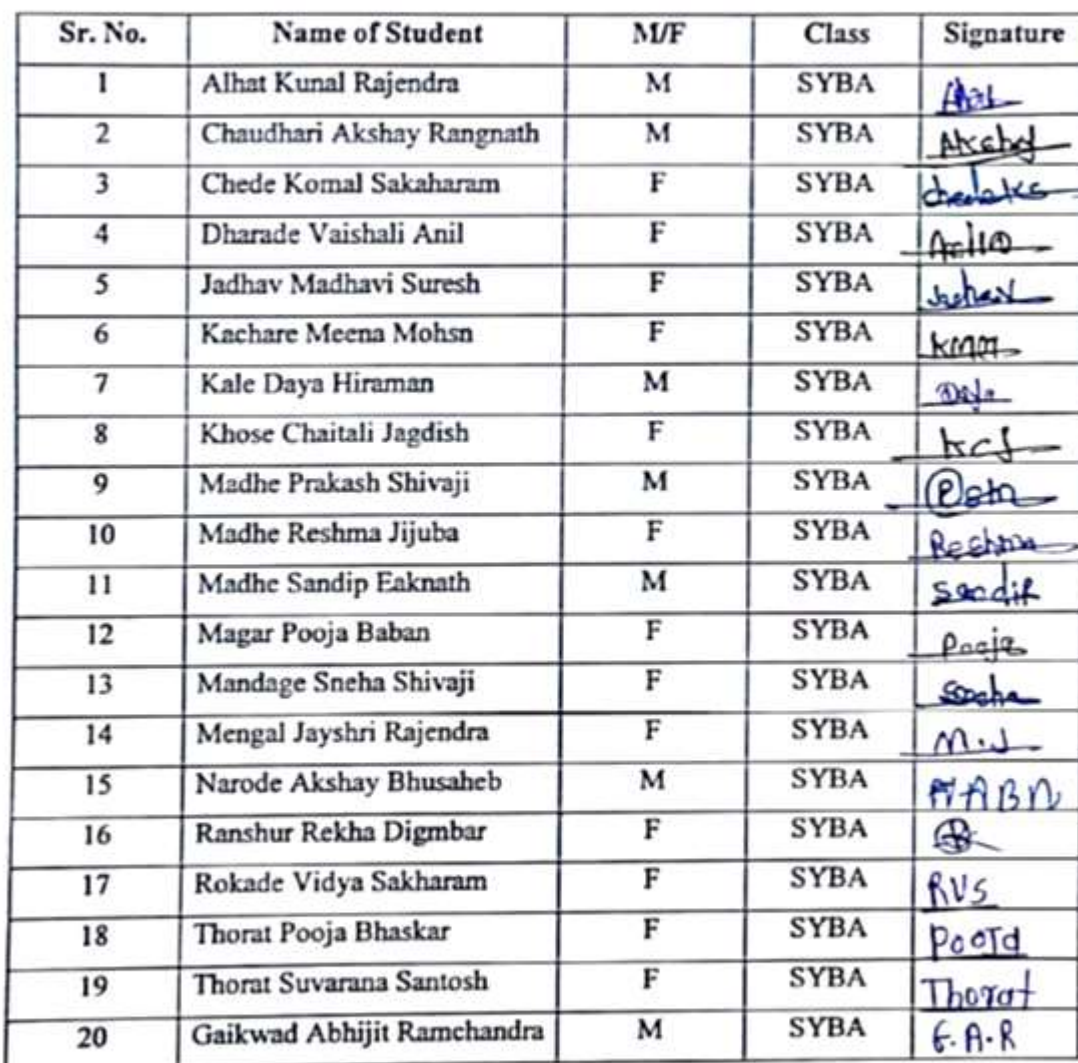 Sr. No. Name of Student M/F Class Signature
1 Alhat Kunal Rajendra M SYBA
2 Chaudhari Akshay Rangnath M SYBA Akshay
3 Chede Komal Sakaharam F SYBA chedeks
4 Dharade Vaishali Anil F SYBA
5 Jadhav Madhavi Suresh F SYBA Jadhav
6 Kachare Meena Mohsn F SYBA KMM
7 Kale Daya Hiraman M SYBA
8 Khose Chaitali Jagdish F SYBA KCJ
9 Madhe Prakash Shivaji M SYBA
10 Madhe Reshma Jijuba F SYBA Reshma
11 Madhe Sandip Eaknath M SYBA Sandip
12 Magar Pooja Baban F SYBA Pooja
13 Mandage Sneha Shivaji F SYBA Sneha
14 Mengal Jayshri Rajendra F SYBA M.J
15 Narode Akshay Bhusaheb M SYBA
16 Ranshur Rekha Digmbar F SYBA
17 Rokade Vidya Sakharam F SYBA RVS
18 Thorat Pooja Bhaskar F SYBA PooJa
19 Thorat Suvarana Santosh F SYBA Thorat
20 Gaikwad Abhijit Ramchandra M SYBA G.A.R